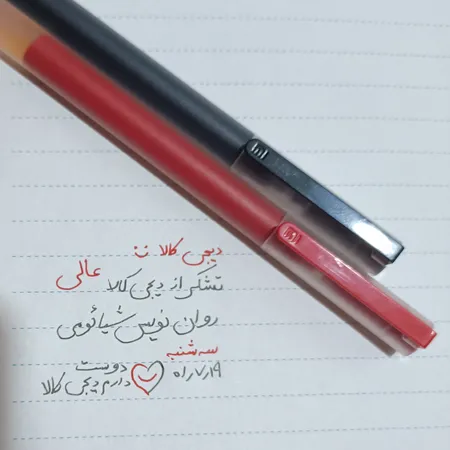 دیجی کالا :ن
تشکر از دیجی کالا عالی
روان نویس شیائومی
سه شنبه
۰۱٫۷٫۱۹
دوست
دارم دیجی کالا